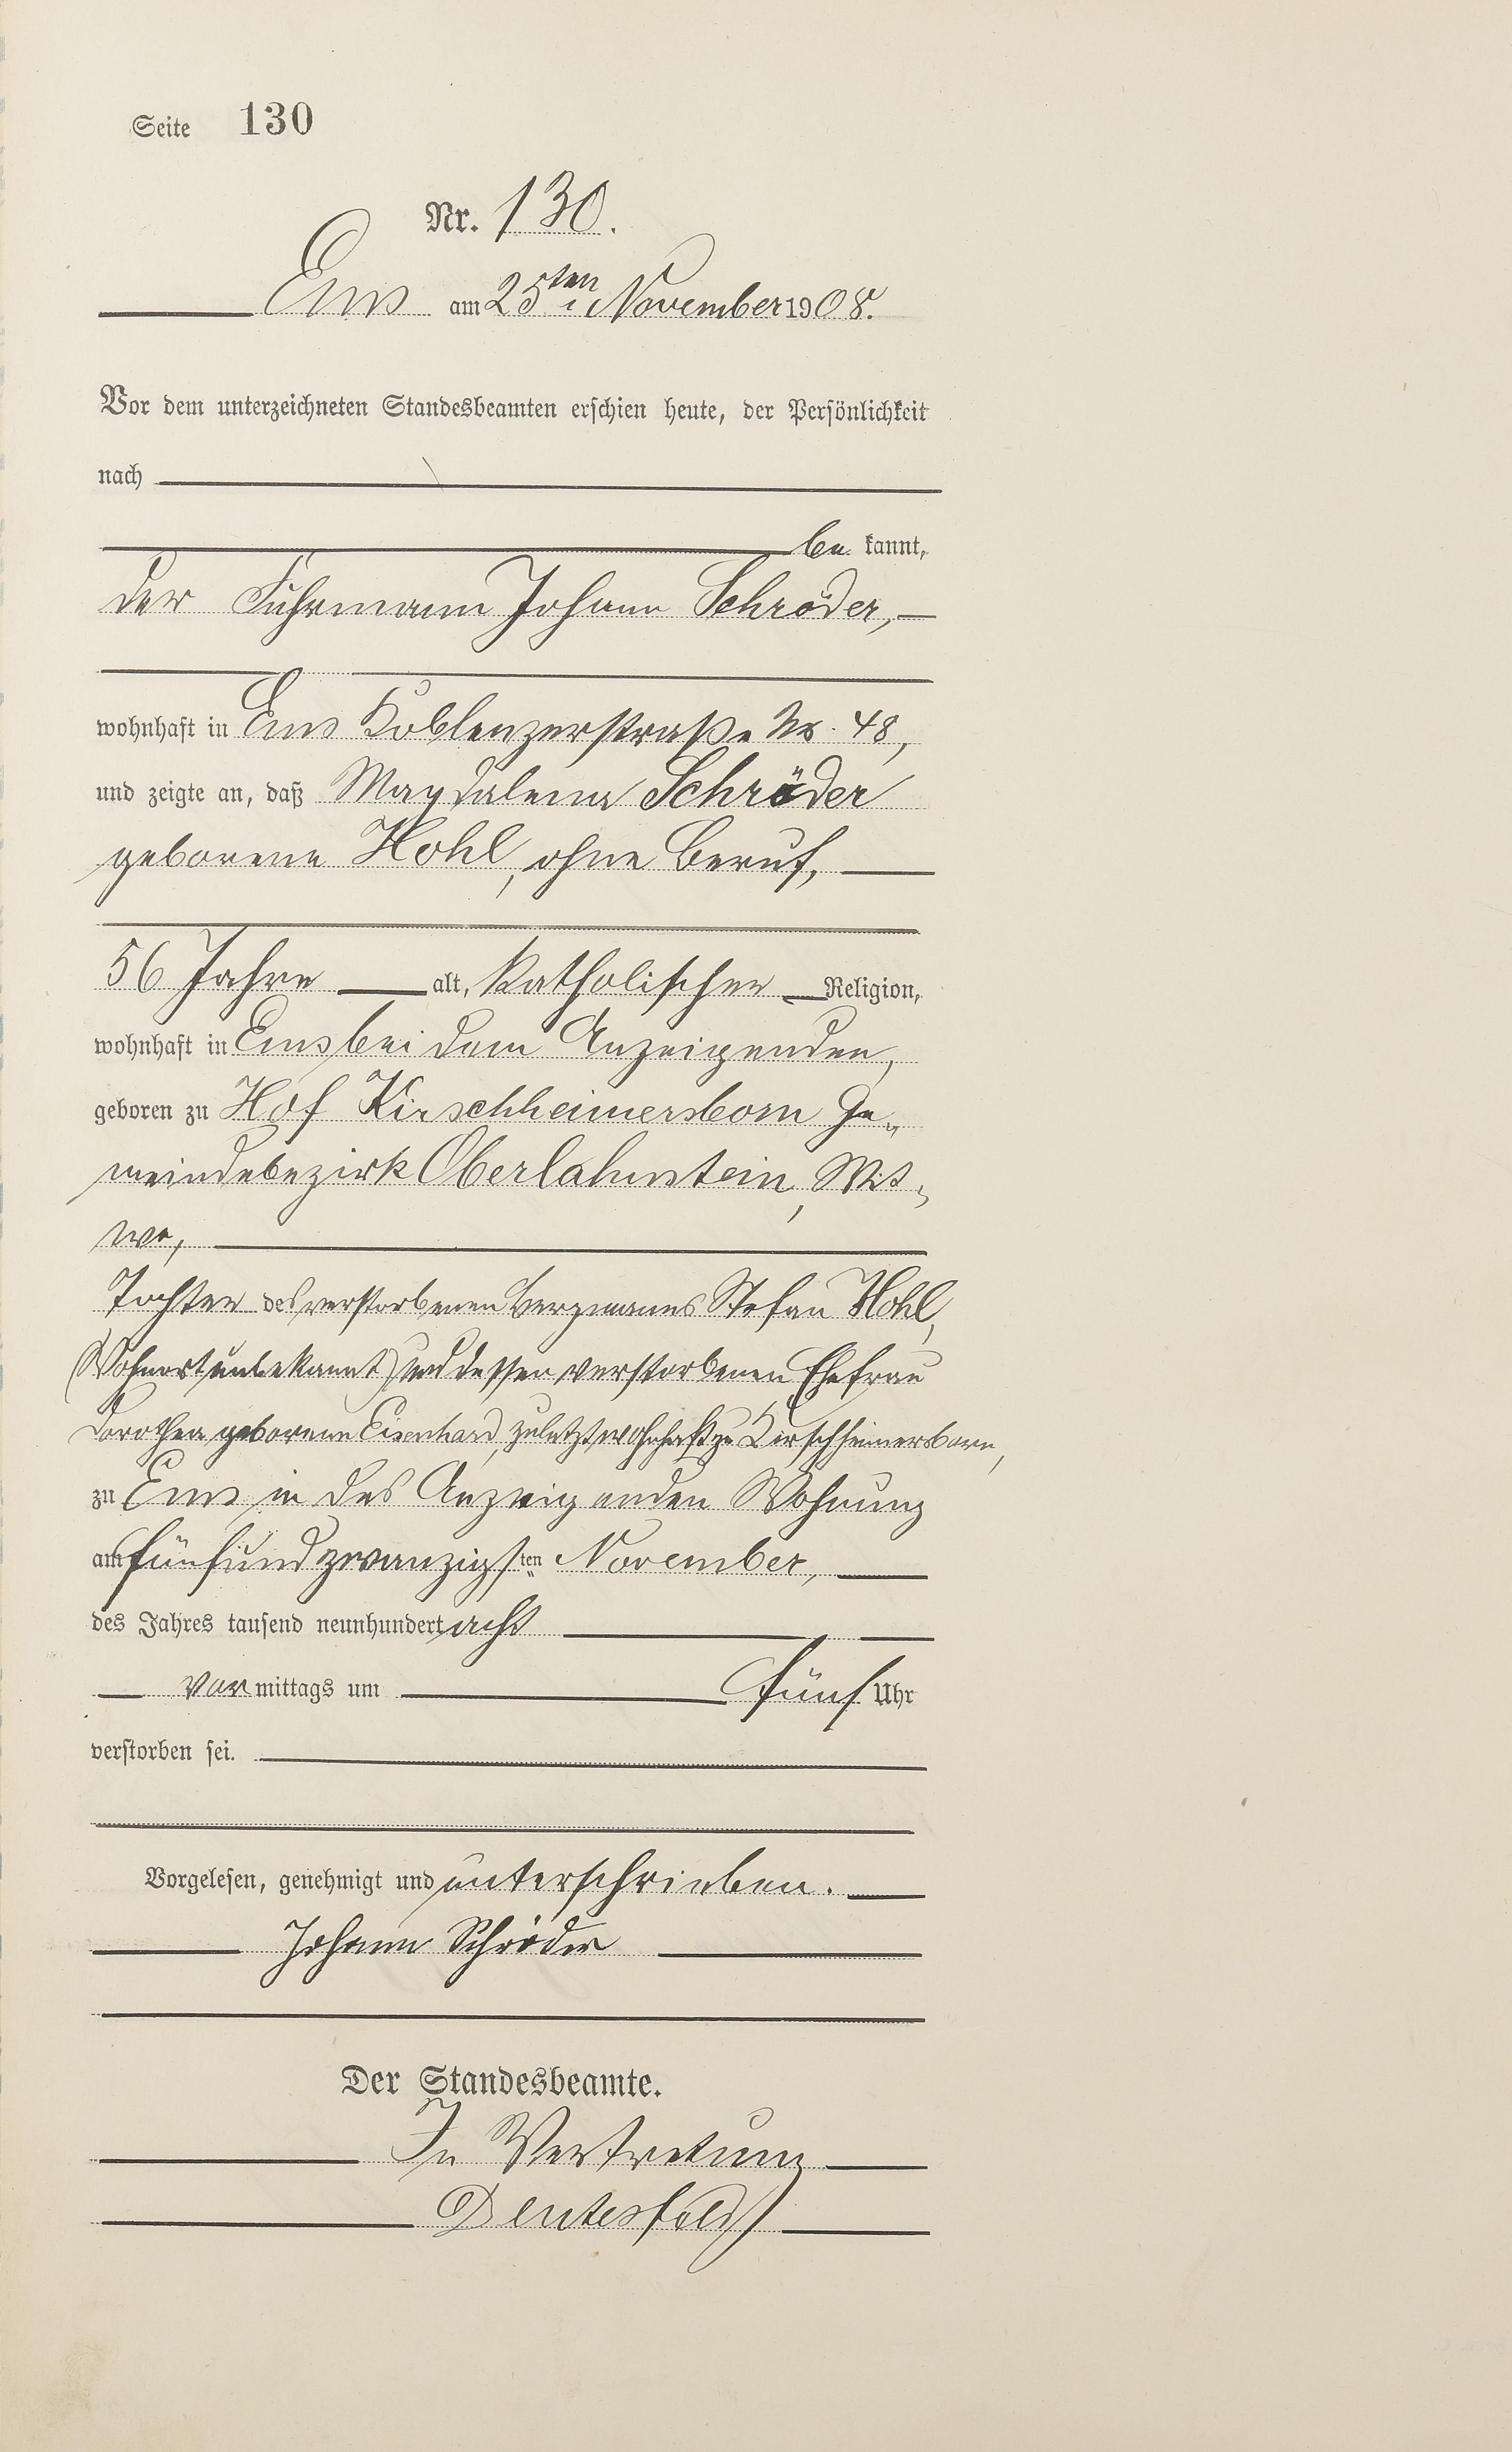 Seite 130
Nr. 130.
Ems am 25ten November 1908.
Vor dem unterzeichneten Standesbeamten erschien heute, der Persönlichkeit
nach
be kannt,
der Fuhrmann Johann Schröder,
wohnhaft in Ems Koblenzerstraße No. 48,
und zeigte an, daß Magdalena Schröder
geborene Hohl, ohne Beruf,
56 Jahre alt, katholischer Religion,
wohnhaft in Ems bei dem Anzeigenden,
geboren zu Hof Kirschheimersborn Ge-
meindebezirk Oberlahnstein, Wit-
we,
Tochter des verstorbenen Bergmanns Stefan Hohl,
(Wohnort unbekannt) und dessen verstorbenen Ehefrau
Dorothea geborene Eisenhard, zuletzt wohnhaft zu Kirschheimersborn,
zu Ems in des Anzeigenden Wohnung
am fünfundzwanzigsten November,
des Jahres tausend neunhundert acht
Vor mittags um fünf Uhr
verstorben sei.
Vorgelesen, genehmigt und unterschrieben.
Johann Schröder
Der Standesbeamte.
In Vertretung